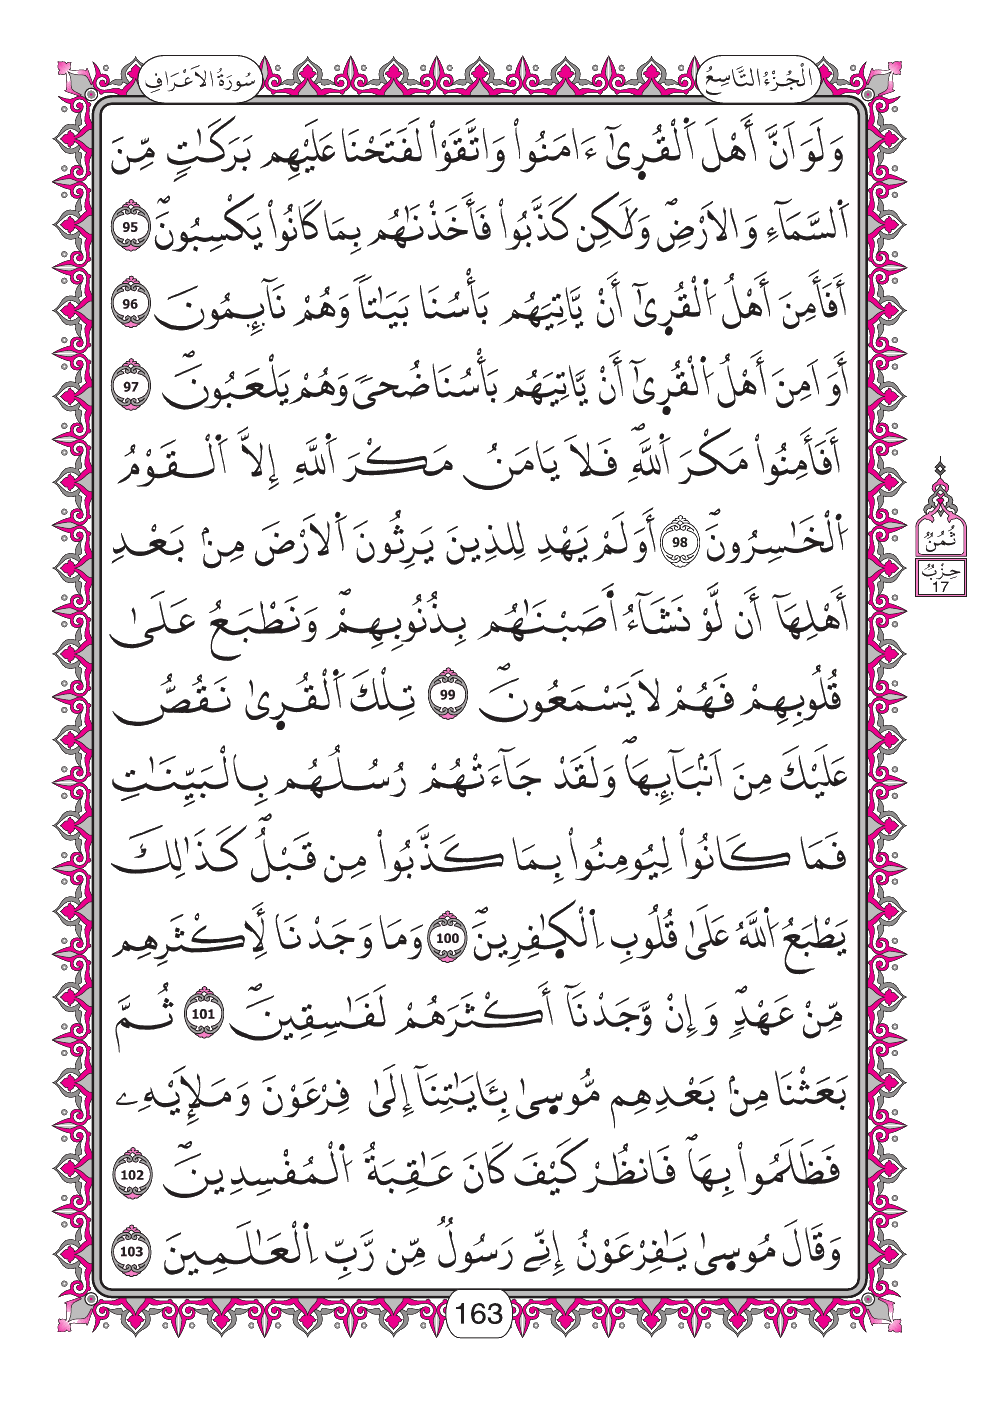 الْجُزْءُ التَّاسِعُ
سُورَةُ الاَعْرَافِ
وَلَوَ اَنَّ أَهْلَ اَلْقُرِىٰٓ ءَامَنُواْ وَاتَّقَوْاْ لَفَتَحْنَا عَلَيْهِم بَرَكَٰتٍ مِّنَ
اَلسَّمَآءِ وَالاَرْضِۖ وَلَٰكِن كَذَّبُواْ فَأَخَذْنَٰهُم بِمَا كَانُواْ يَكْسِبُونَۖ 95
أَفَأَمِنَ أَهْلُ اُلْقُرِىٰٓ أَنْ يَّاتِيَهُم بَأْسُنَا بَيَٰتاً وَهُمْ نَآئِمُونَ 96
أَوَ اَمِنَ أَهْلُ اُلْقُرِىٰٓ أَنْ يَّاتِيَهُم بَأْسُنَا ضُحىً وَهُمْ يَلْعَبُونَۖ 97
أَفَأَمِنُواْ مَكْرَ اَللَّهِۖ فَلاَ يَامَنُ مَكْرَ اَللَّهِ إِلاَّ اَلْقَوْمُ
اُلْخَٰسِرُونَۖ 98 أَوَلَمْ يَهْدِ لِلذِينَ يَرِثُونَ اَلاَرْضَ مِنۢ بَعْدِ
أَهْلِهَآ أَن لَّوْ نَشَآءُ أَصَبْنَٰهُم بِذُنُوبِهِمْۖ وَنَطْبَعُ عَلَىٰ
قُلُوبِهِمْ فَهُمْ لاَ يَسْمَعُونَۖ 99 تِلْكَ اَلْقُرِىٰ نَقُصُّ
عَلَيْكَ مِنَ اَنۢبَآئِهَاۖ وَلَقَدْ جَآءَتْهُمْ رُسُلُهُم بِالْبَيِّنَٰتِ
فَمَا كَانُواْ لِيُومِنُواْ بِمَا كَذَّبُواْ مِن قَبْلُۖ كَذَٰلِكَ
يَطْبَعُ اُللَّهُ عَلَىٰ قُلُوبِ اِلْكٰ۪فِرِينَۖ 100 وَمَا وَجَدْنَا لَأِكْثَرِهِم
مِّنْ عَهْدٍۖ وَإِنْ وَّجَدْنَآ أَكْثَرَهُمْ لَفَٰسِقِينَۖ 101 ثُمَّ
بَعَثْنَا مِنۢ بَعْدِهِم مُّوسِىٰ بِـَٔايَٰتِنَآ إِلَىٰ فِرْعَوْنَ وَمَلَإِيْهِۦ
فَظَلَمُواْ بِهَاۖ فَانظُرْ كَيْفَ كَانَ عَٰقِبَةُ اُلْمُفْسِدِينَۖ 102
وَقَالَ مُوسِىٰ يَٰفِرْعَوْنُ إِنِّے رَسُولٌ مِّن رَّبِّ اِلْعَٰلَمِينَ 103
ثُمُنٌ
حِزْبُ
17
163